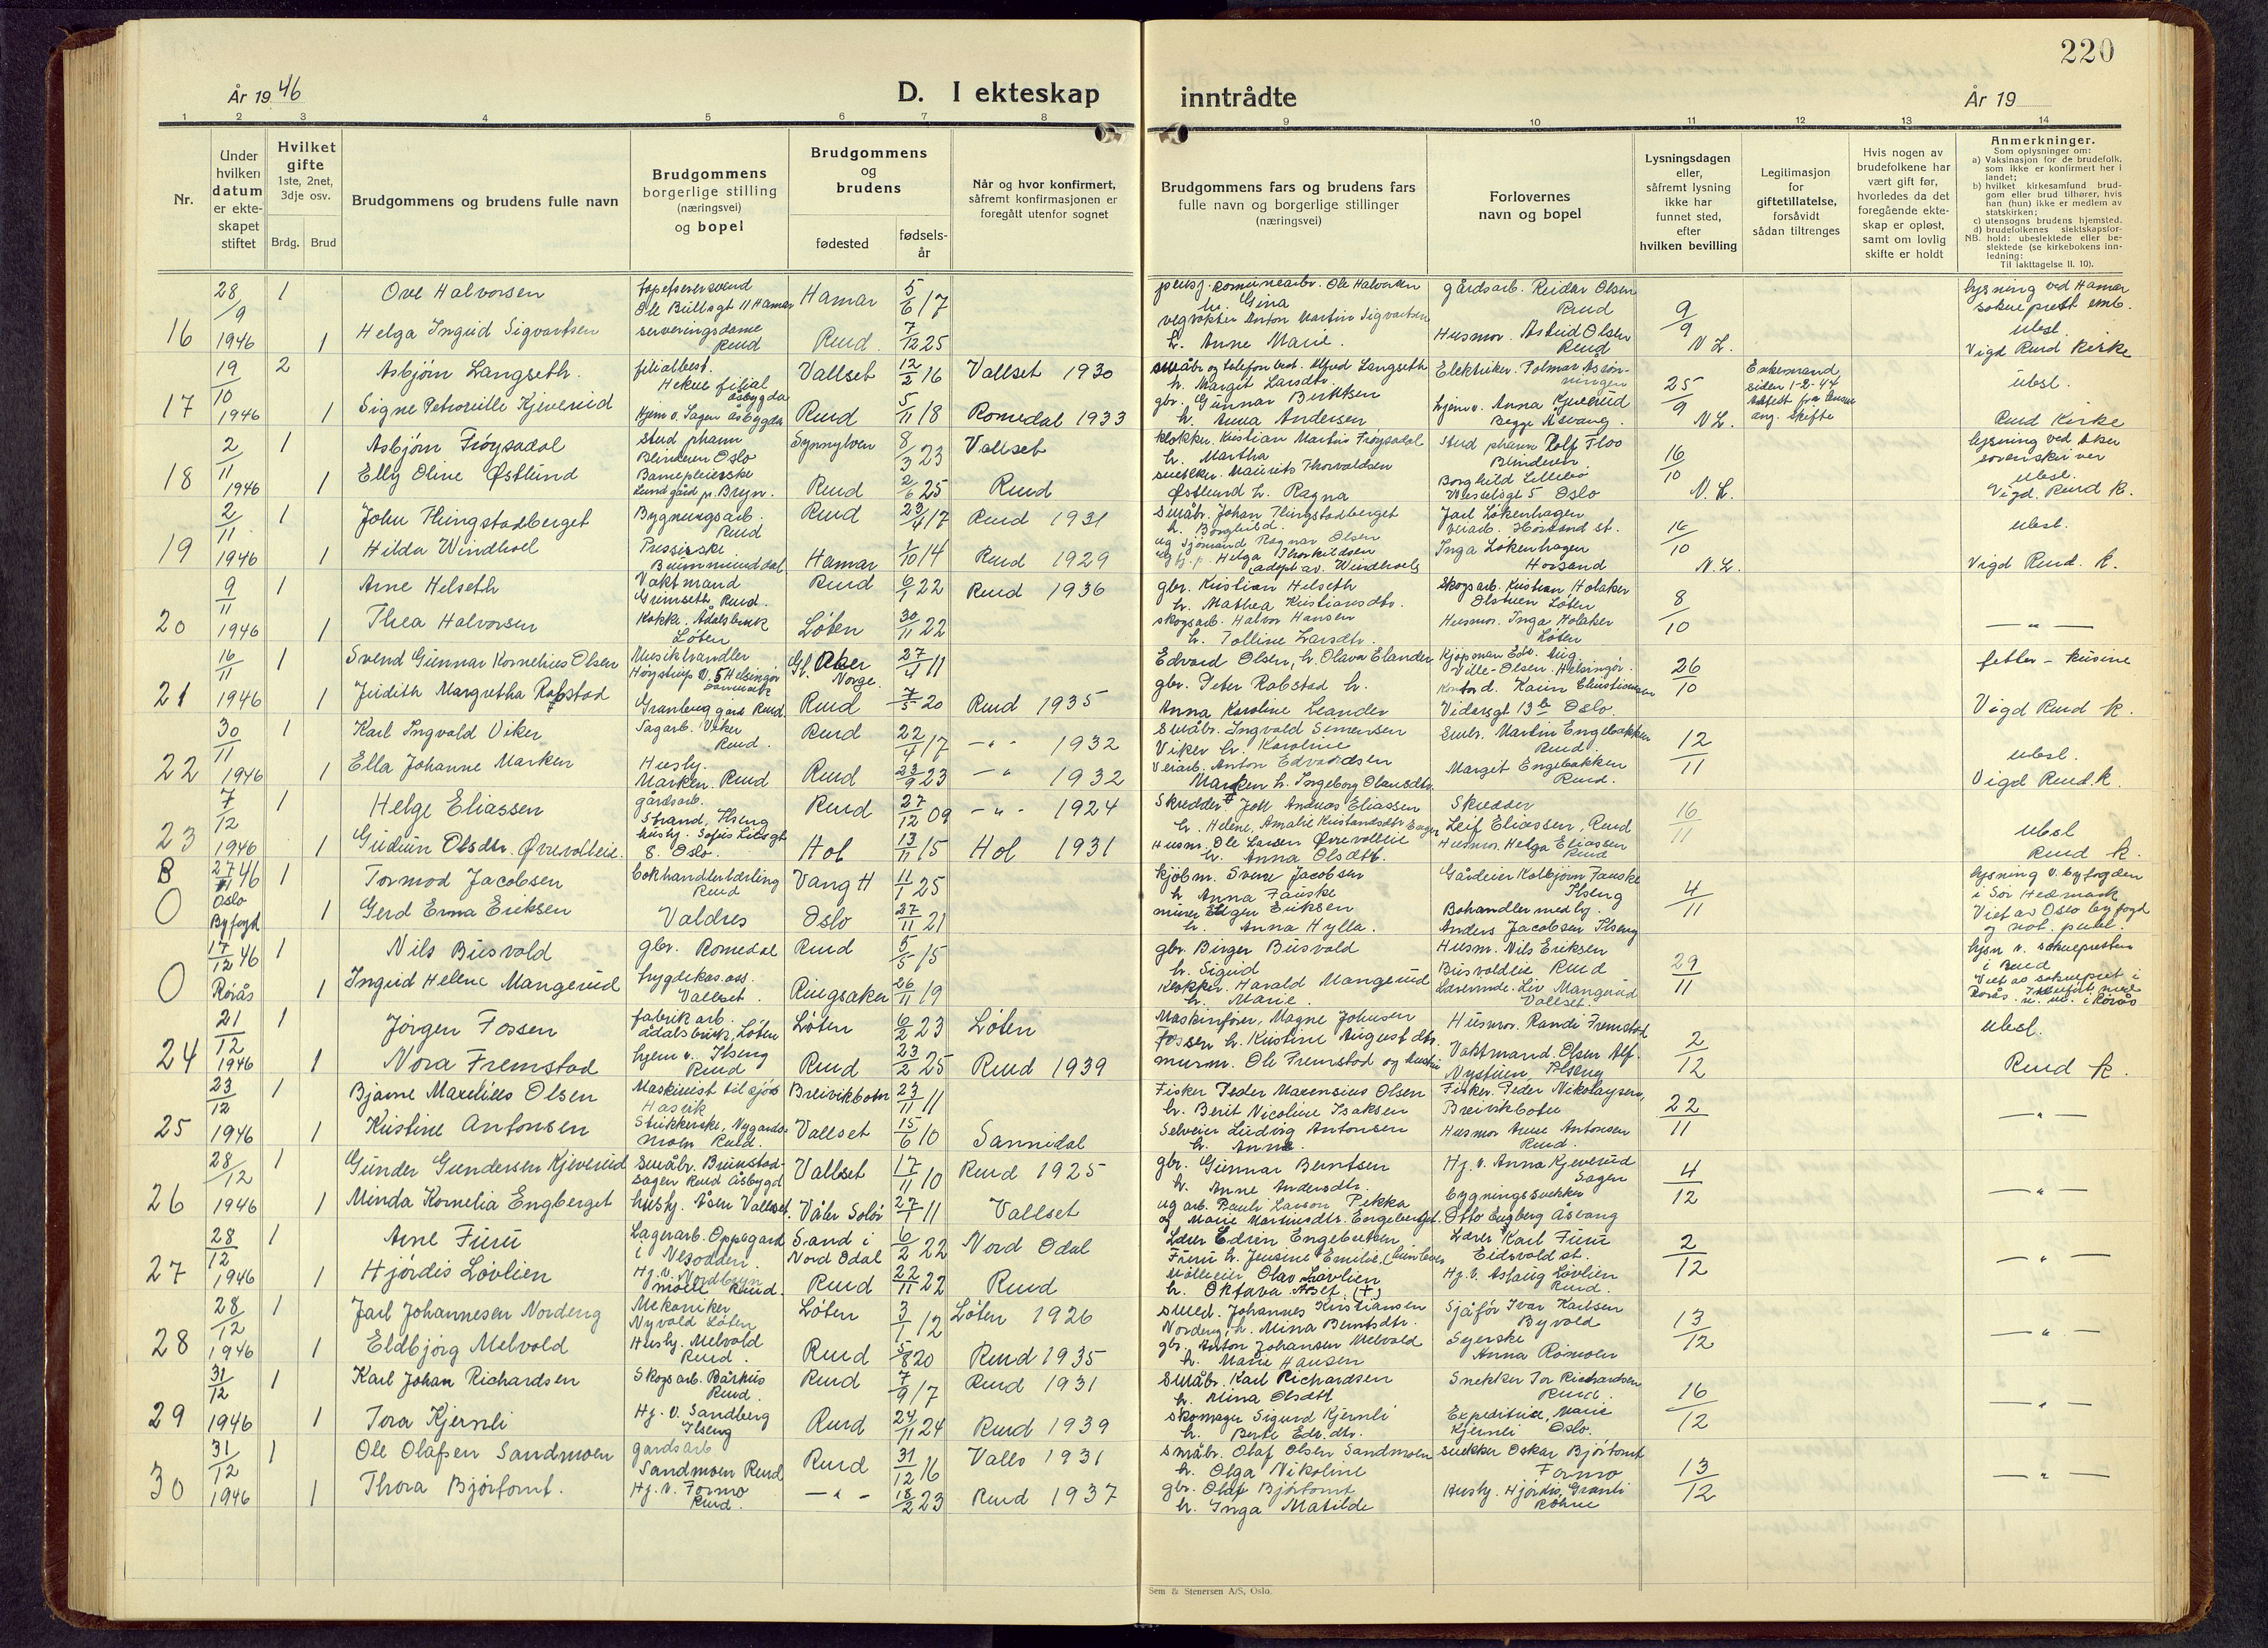 220
År 1946
D. I ekteskap
inntrådte
År 19
1 2 3 4 5 6 7 8 9 10 11 12 13 14
Nr.
Under
hvilken
datum
er ekte-
skapet
stiftet
Hvilket
gifte
1ste, 2net,
3dje osv.
Brdg. Brud
Brudgommens og brudens fulle navn
Brudgommens
borgerlige stilling
(næringsvei)
og bopel
Brudgommens
og
brudens
fødested
fødsels-
år
Når og hvor konfirmert,
såfremt konfirmasjonen er
foregått utenfor sognet
Brudgommens fars og brudens fars
fulle navn og borgerlige stillinger
(næringsvei)
Forlovernes
navn og bopel
Lysningsdagen
eller,
såfremt lysning
ikke har
funnet sted,
efter
hvilken bevilling
Legitimasjon
for
giftetillatelse,
forsåvidt
sådan tiltrenges
Hvis nogen av
brudefolkene har
vært gift før,
hvorledes da det
foregående ekte-
skap er opløst,
samt om lovlig
skifte er holdt
Anmerkninger.
Som oplysninger om:
a) Vaksinasjon for de brudefolk,
som ikke er konfirmert her i
landet;
b) hvilket kirkesamfund brud-
gom eller brud tilhører, hvis
han (hun) ikke er medlem av
statskirken;
c) utensogns brudens hjemsted.
d) brudefolkenes slektskapsfor-
hold: ubeslektede eller be-
slektede (se kirkebokens inn-
ledning:
NB.
Til iakttagelse II. 10).
28/9 1 Ove Halvorsen Ole Bullsgt 11 Hamar Hamar 5/6 17 Ole Halvorsen h. Gina gårdsarb. Reidar Olsen Rud 9/9 lysning ved Hamar sokneprest emb.
16 1946 1 Helga Ingrid Sigvartsen serveringsdame Rud Rud 7/12 25 vegvokter Anton Martin Sigvartsen h. Anne Marie. Husmor. Astrid Olsen Rud N L. ubesl. Vigd Rud Kirke
19/10 2 Asbjørn Langseth. filialbest. filial Åsbygda Vallset 12/2 16 Vallset 1930 småbr og telefon best. Alfred Langseth h. Margit Larsdtr. Elektriker. 25/9 Enkemand siden 1-2-44 ubesl.
17 1946 1 Signe Petronille Kjeverud hjem v. Sagen Åsbygda Rud 5/11 18 Romedal 1933 gbr. Gunnar h. Anna Andersen hjem v. Anna Kjeverud Begge Åsvang. N L. ang. skifte Rud Kirke
2/11 1 Asbjørn Frøysadal Stud pharm Blindern Oslo Synnylven 8/3 23 Vallset Klokker. Kristian Martin Frøysadal h. Martha Stud pharm Rolf Floo Blindern 16/10 lysning ved Aker sorenskriver
18 1946 1 Elly Oline Østlund Barnepleierske Lund gård p. Bryn. Rud 2/6 25 Rud snekker. Maurits Thorvaldsen Østlund h. Ragna Borghild Lillebo Wesselsgt 5 Oslo N. L. ubesl. Vigd. Rud k.
2/11. 1 John Hingstadberget Bygningsarb. Rud Rud 23/4 17 Rud 1931 Småbr. Johan Hingstadberget h. Borghild. Jarl Løkenhagen Veiarb. Horsand st. 16/10 ubesl.
19 1946 1 Hilda Windhoel Presserske Brummunddal Hamar 1/10 14 Rud 1929 ug sjømand Ragnar Olsen Helga Thorkildsen adopt av. Windhoels Inga Løkenhagen Horsand N. L. Vigd Rud. k.
9/11 1 Arne Helseth Vaktmand Grimseth Rud. Rud 6/1 22 Rud 1936 gbr. Kristian Helseth h. Mathea Kristiansdtr. Skogsarb. Kristian Holaker Løten 8/10
20 1946 1 Thea Halvorsen Kokke. Ådalsbruk Løten Løten 30/11 22 skogsarb. Halvor Hansen h. Tolline Larsdtr. Husmor. Inga Holaker Løten — " —
16/11 1 Svend Gunnar Kornelius Olsen Musikhandler Helsingør Danmark Gl. Aker Norge. 27/4 11 Edvard Olsen, h. Olava Elander Kjøpman Edv. Aug. Ville-Olsen. Helsingør. 26/10 fetter - kusine
21 1946 1 Judith Margretha Rabstad Granberg gard Rud. Rud 7/5 20 Rud 1935 gbr. Peter Rabstad h. Anna Karoline Leander Kontord. Karin Christiansen Vidarsgt 13b Oslo. Vigd Rud k.
30/11 1 Karl Ingvald Viker Sagarb. Viker Rud. Rud 22/4 17 - " - 1932 Småbr. Ingvald Simensen Viker h. Karoline Småbr. Martin Engebakken Rud. 12/11 ubesl.
22 1946 1 Ella Johanne Marken Husby. Marken. Rud Rud 23/9 23 - " 1932 Veiarb. Anton Edvardsen Marken h. Ingeborg Olausdtr. Margit Engebakken Rud. Vigd Rud.k.
7/12 1 Helge Eliassen gårdsarb. Strand, Ilseng Rud 27/12 09 - " - 1924 Skredder Joh Andreas Eliassen h. Helene, Amalie Kristiansdtr Skredder Leif Eliassen, Rud 16/11 ubesl
23 1946 1 Gudrun Olsdtr. Øvrevolleie. 8. Oslo. Hol 13/11 15 Hol 1931 Husm. Ole Larsen Øvrevolleie h. Anna Olsdtr. Husmor. Helga Eliassen Rud Rud k.
B 27/11 46 1 Tormod Jacobsen bokhandlerlærling Rud Vang H 11/1 25 Kjøbm. Svein Jacobsen h. Anna Fauske Gårdeier Kolbjørn Fauske Ilseng 4/11 lysning v. byfogden i Sør Hedmark
O Oslo Byfogd 1 Gerd Erna Eriksen Valdres Oslo 27/11 21 murer Eriksen h. Anna Hylla. Bohandler Anders Jacobsen Ilseng Viet av Oslo byfogd og not. publ.
17/12 46 1 Nils Busvold gbr. Romedal Rud 5/5 15 gbr. Birger Busvold h. Sigrid Husm. Nils Eriksen Busvoldeie Rud 29/11 lysn v. sokneprsten i Rud
O Rørås 1 Ingrid Helene Mangerud trygdekas ass. Vallset. Ringsaker 26/11 19 Klokker. Harald Mangerud h. Marie. Liv Mangerud Vallset. Viet av sokneprest i Rørås.
21/12 1 Jørgen Fossen fabrikarb. Ådalsbruk, Løten Løten 6/2 23 Løten Maskinfører, Magne Johnsen Fossen h. Kristine Augustdtr. Husmor. Randi Fremstad 2/12 ubesl.
24 1946 1 Nora Fremstad hjem v. Ilseng Rud Rud 23/2 25 Rud 1939 murm. Ole Fremstad og Vaktmand. Olsen Alf. Nystuen, Ilseng Rud k.
23/12 1 Bjarne Marelius Olsen Maskinist til sjøs Hasvik Breivikbotn 23/11 11 Fisker Peder Marensius Olsen h. Berit Nicoline Isaksen Fisker. Peder Nikolaysen, Breivikbotn 22/11
25 1946 1 Kristine Antonsen Strikkerske, Nygardsmoen Rud. Vallset 15/6 10 Sannidal Selveier Ludvig Antonsen h. Anne. Husmor Anne Antonsen Rud. — " —
28/12 1 Gunder Gundersen Kjeverud småbr. Brunstadsagen Rud Åsbygd Vallset 17/11 10 Rud 1925 gbr. Gunnar Berntsen h. Anne Andersdtr. Hj. v. Anna Kjeverud Sagen 4/12
26 1946 1 Minda Kornelia Engberget husby. Åsen Vallset. Våler Solør 27/1 11 Vallset ug arb. Pauli Larson Pekka og Marie Martinsdtr. Engeberget. bygningssnekker Otto Engberg Åsvang — " —
28/12 1 Arne Furu Lagerarb. Oppegård i Nesodden. Sand i Nord Odal 6/2 22 Nord Odal Lærer Edvin Engebretsen Furu h. Jensine Emilie Lærer Karl Furu Eidsvold st. 2/12
27 1946 1 Hjørdis Løvlien Hj.v. Nordbryn mølle Rud. Rud 22/11 22 Rud Mølleeier Olav Løvlien h. Oktava Åset. (+) Hj. v. Aslaug Løvlien Rud. — " —
28/12 1 Jarl Johannesen Nordeng Mekaniker Nyvold Løten Løten 3/1 12 Løten 1926 smed. Johannes Kristiansen Nordeng, h. Mina Berntsdtr. Sjåfør Ivar Karlsen Byvold 13/12
28 1946 1 Eldbjørg Melvold Husby. Melvold Rud. Rud 5/8 20 Rud 1935 gbr. Anton Johansen Melvold h. Marie Hansen Syerske Anna Romoen — " —
31/12 1 Karl Johan Richardsen Skogsarb. Bårhus Rud. Rud 7/9 17 Rud 1931 Småbr. Karl Richardsen h. Mina Olsdtr Snekker Tor Richardsen Rud. 16/12
29 1946 1 Tora Kjernli Hj. v. Sandberg Ilseng Rud 24/11 24 Rud 1939 skomager Sigurd Kjernli h. Berte Edv.dtr. Expeditrice, Marie Kjernli Oslo. — " —
31/12 1 Ole Olafsen Sandmoen gardsarb Sandmoen Rud Rud 31/12 16 Valle 1931 småbr. Olaf Olsen Sandmoen h. Olga Nikoline snekker Oskar Bjørtomt Formo 13/12
30 1946 1 Thora Bjørtomt. Hj. v. Formo Rud. - " - 18/2 23 Rud 1937 gbr. Olaf Bjørtomt h. Inga Matilde Husby. Hjørdis, Granli — " —
Sem & Stenersen A/S, Oslo.